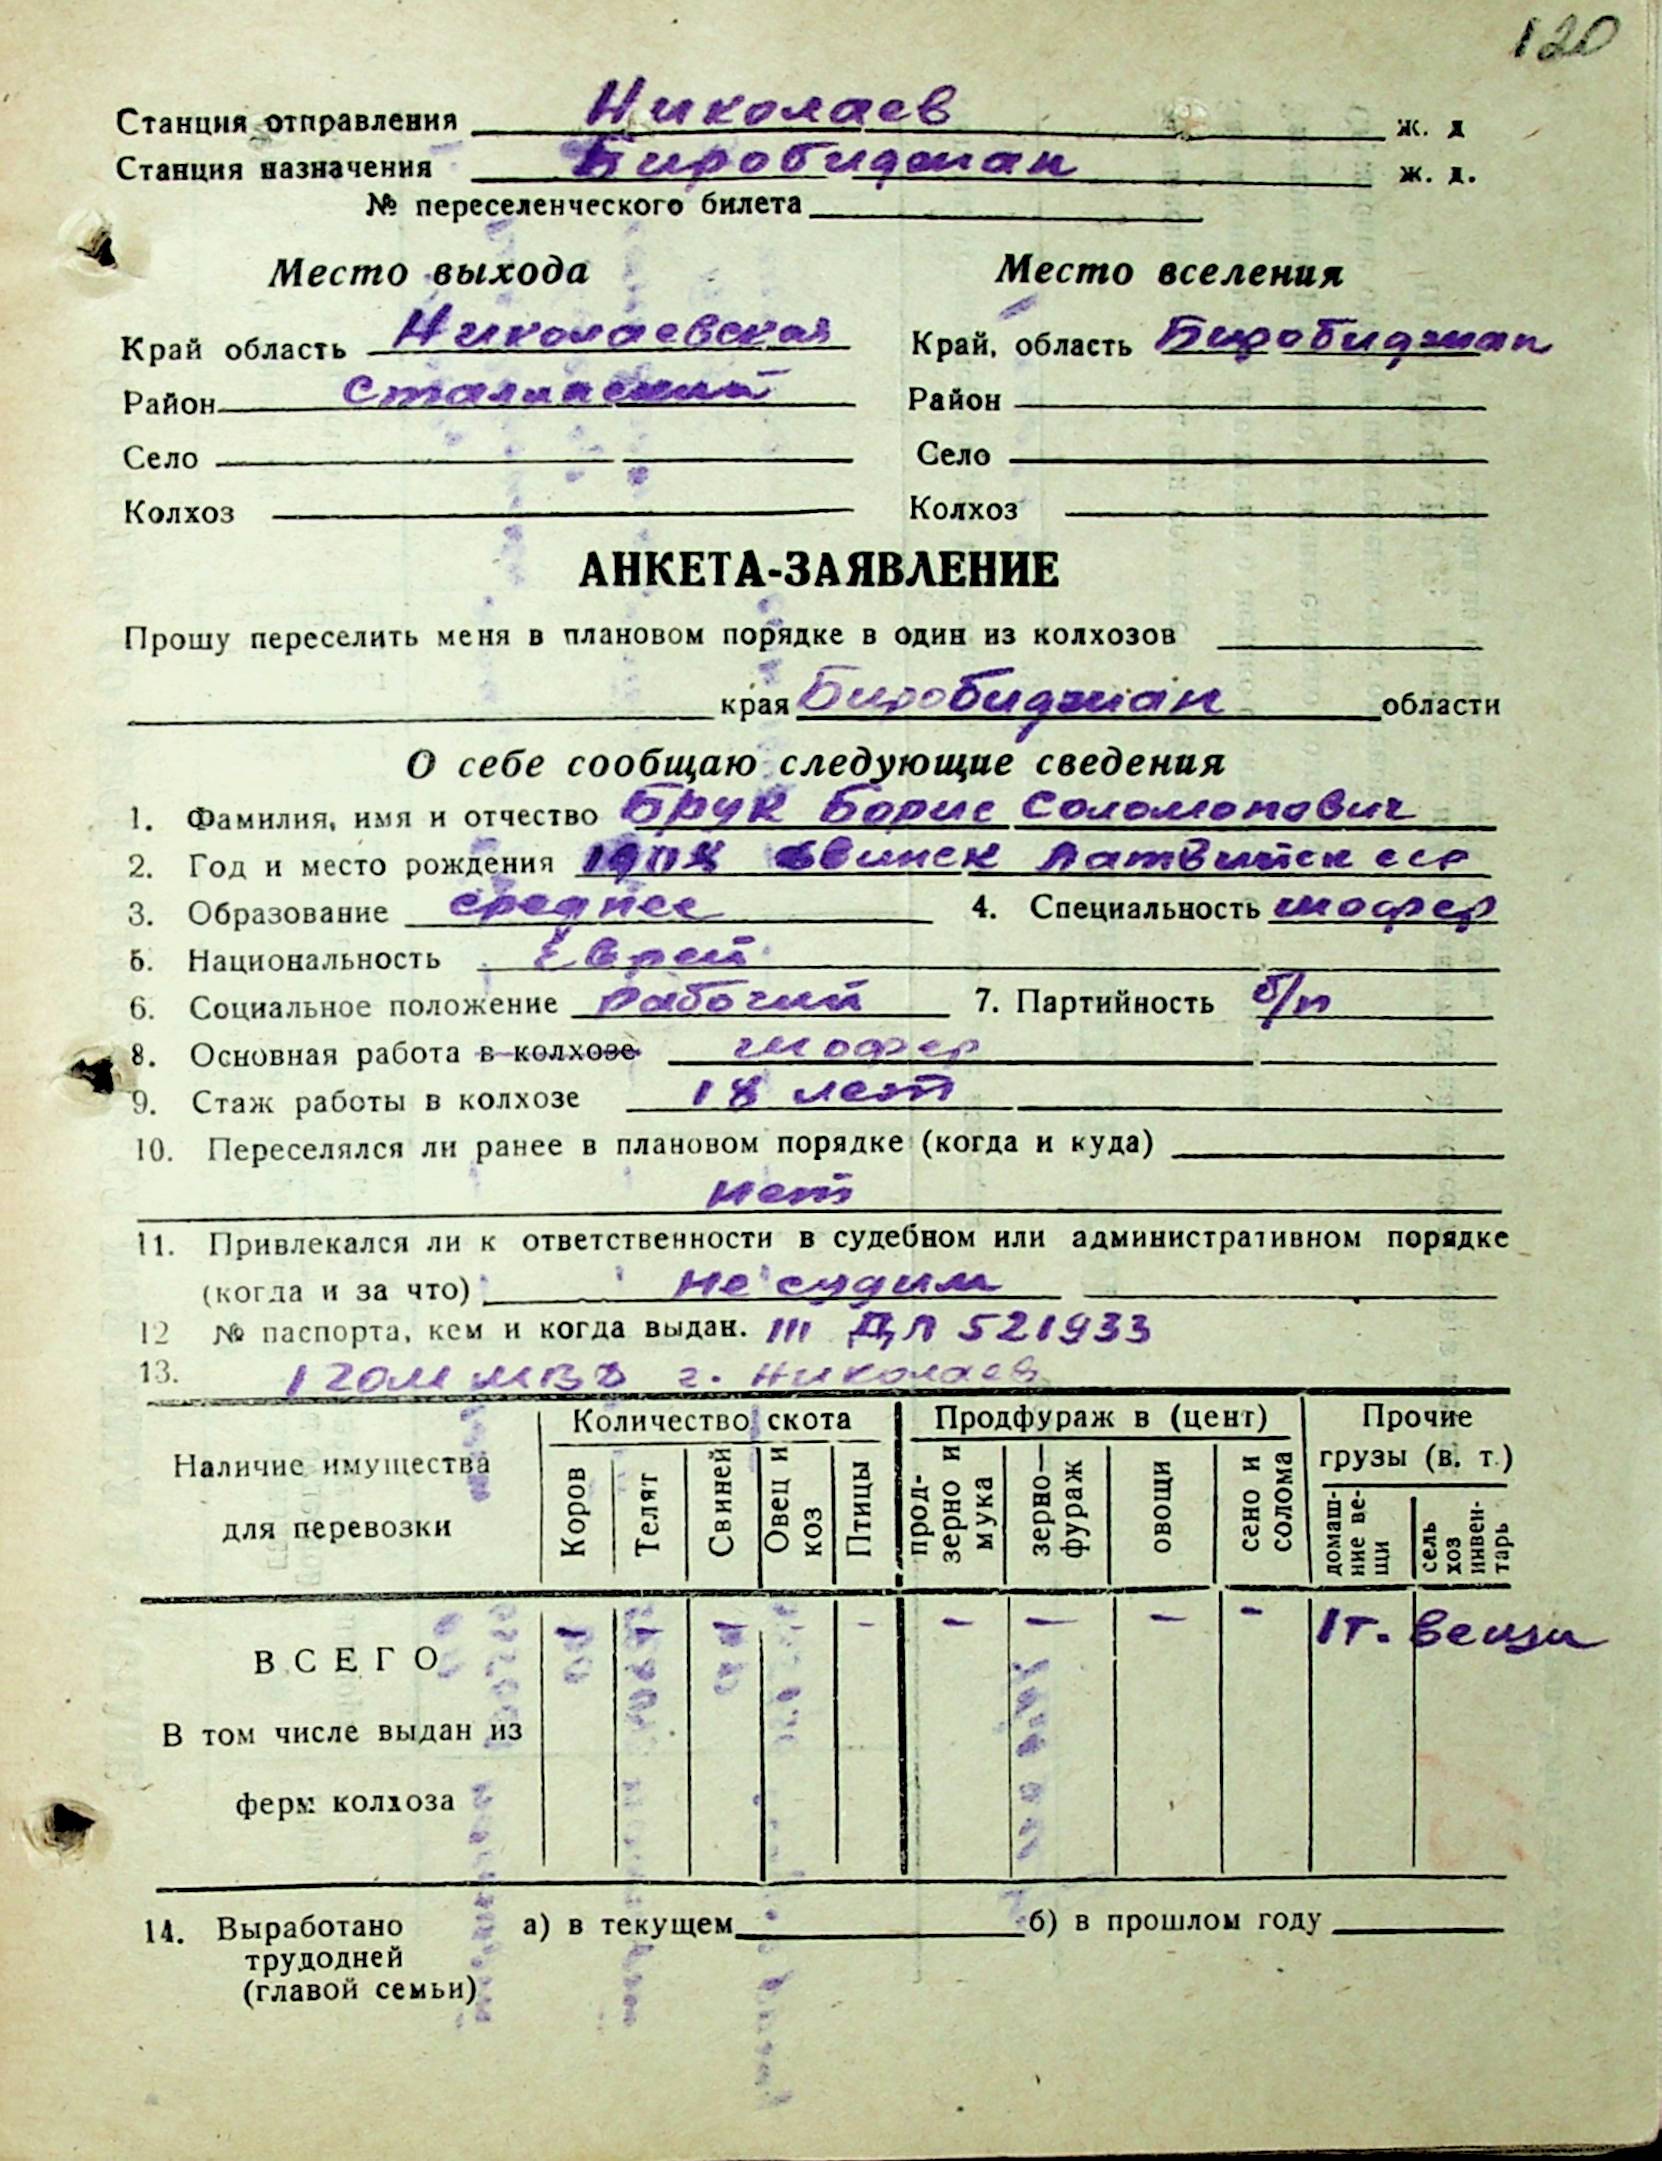 120
Станция отправления Николаев ж. д
Станция назначения Биробиджан ж. д.
№ переселенческого билета
Место выхода Место вселения
Край область Николаевская Край, область Биробиджан
Район Сталинский Район
Село Село
Колхоз Колхоз
АНКЕТА-ЗАЯВЛЕНИЕ
Прошу переселить меня в плановом порядке в один из колхозов
края Биробиджан области
О себе сообщаю следующие сведения
1. Фамилия, имя и отчество Брук Борис Соломонович
2. Год и место рождения Двинск Латвийск сср
3. Образование среднее 4. Специальность шофер
5. Национальность Еврей
6. Социальное положение рабочий 7. Партийность б/п
8. Основная работа в колхозе шофер
9. Стаж работы в колхозе 18 лет
10. Переселялся ли ранее в плановом порядке (когда и куда)
нет
11. Привлекался ли к ответственности в судебном или административном порядке
(когда и за что) не судим
12 № паспорта, кем и когда выдан. III ДЛ 521933
13. 1 ГОМ МВД г. Николаев
Наличие имущества для перевозки
Количество скота Продфураж в (цент) Прочие грузы (в. т.)
Коров Телят Свиней Овец и коз Птицы прод-зерно и мука зерно—фураж овощи сено и солома домаш-ние ве-щи сель хоз инвен-тарь
ВСЕГО - - - - - - - - 1т. вещи
В том числе выдан из
ферм колхоза
14. Выработано а) в текущем б) в прошлом году
трудодней
(главой семьи)